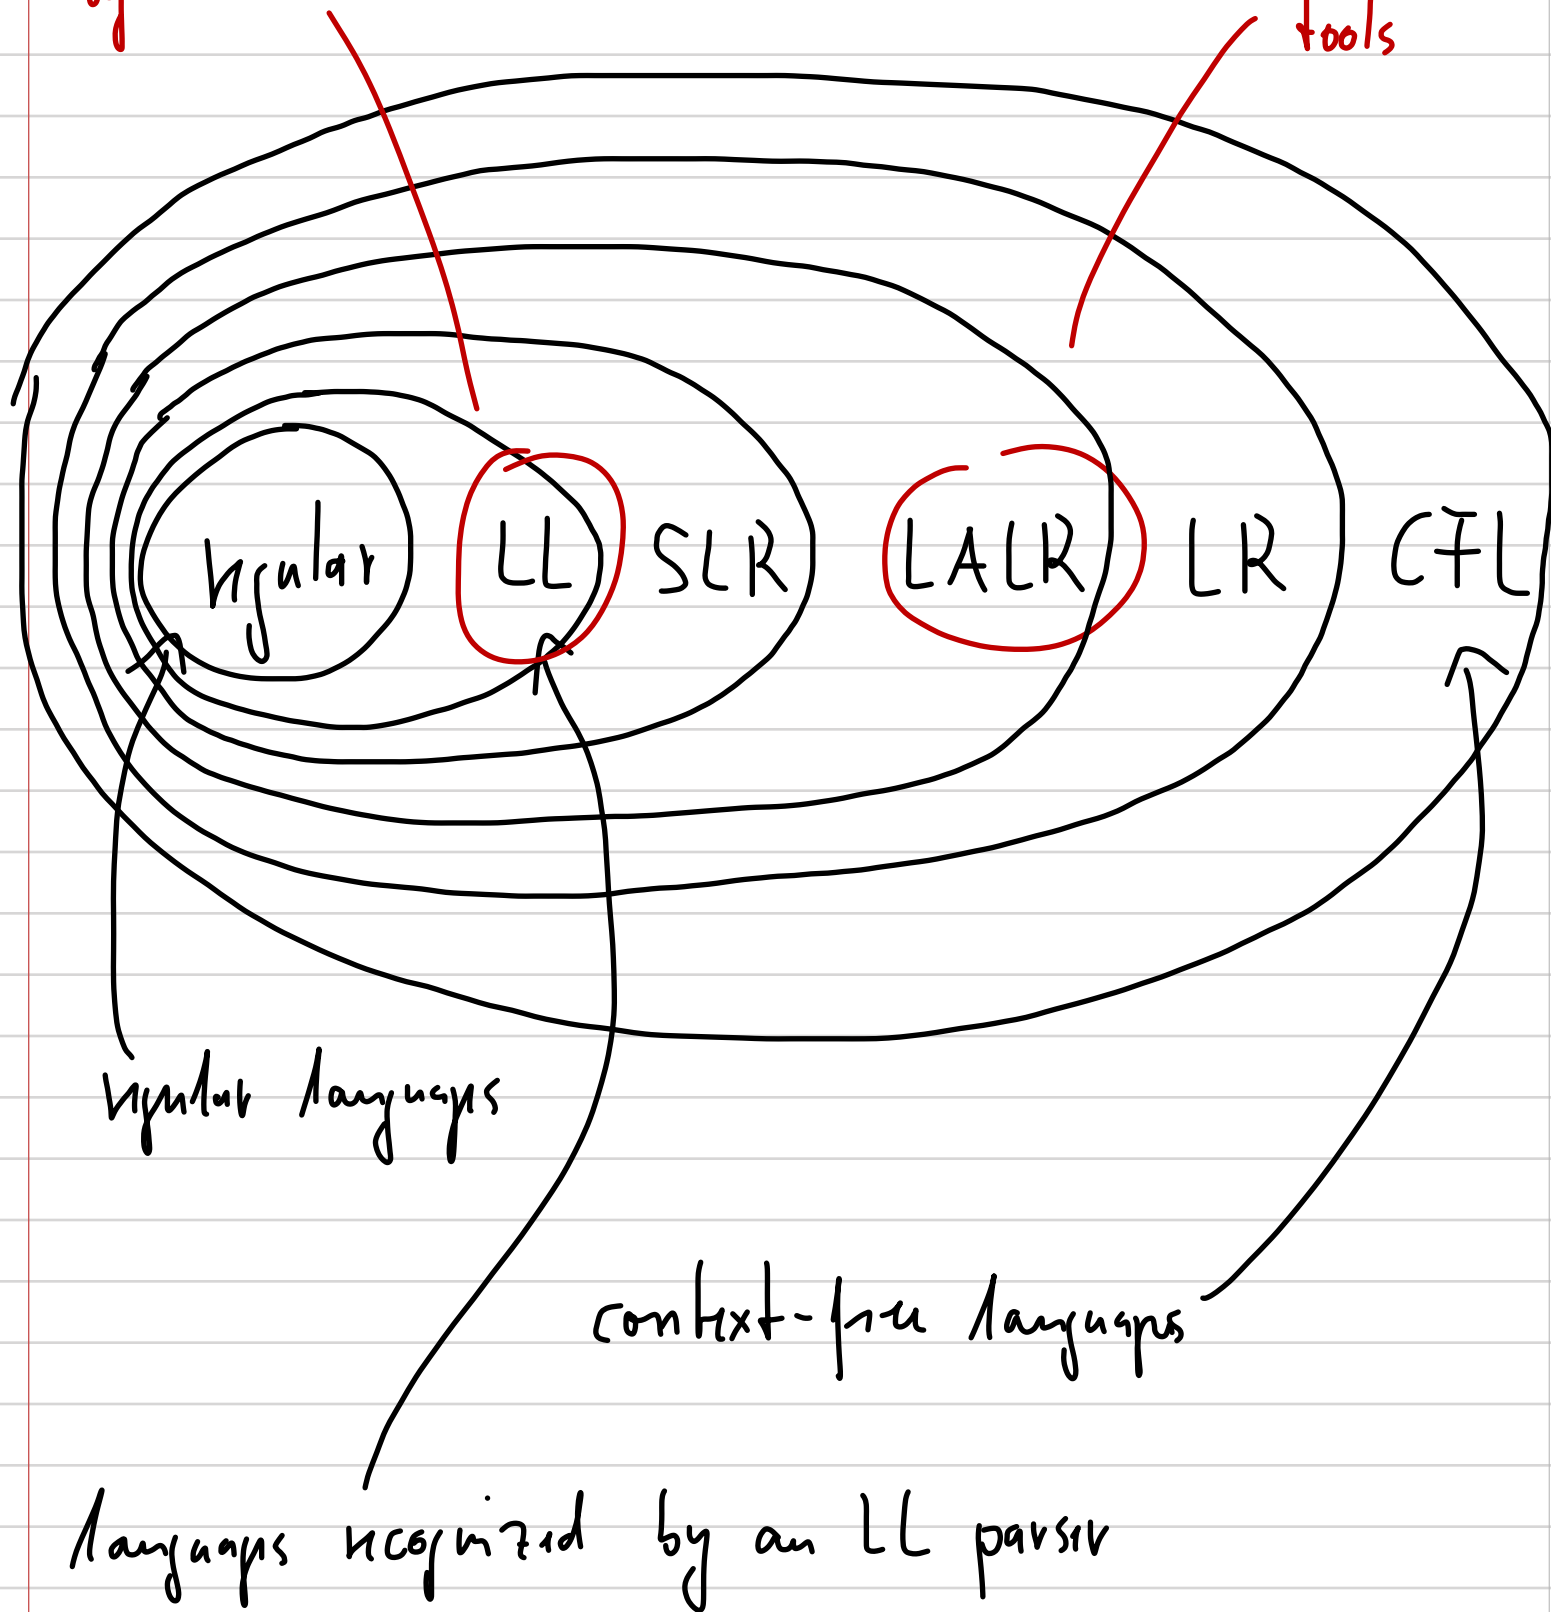 tools
regular LL SLR LALR LR CFL
regular languages
context-free languages
languages recognized by an LL parser